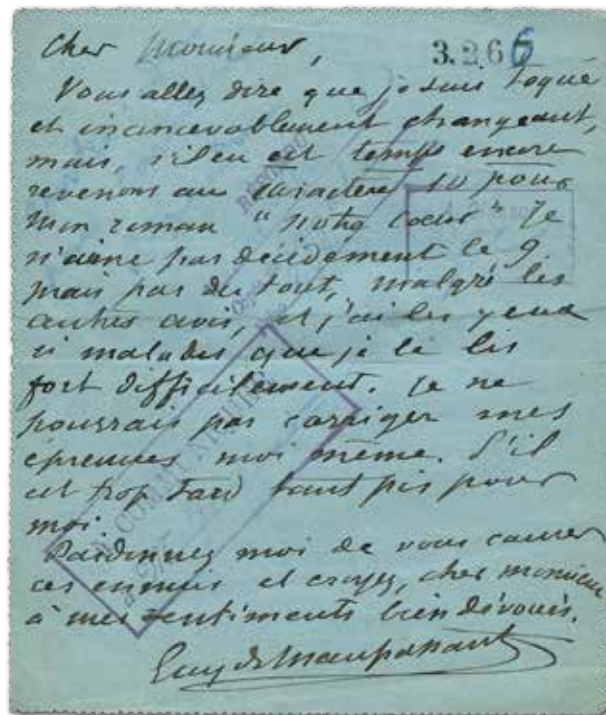 Cher Monsieur,
3.2.66
Vous allez dire que je suis toqué
et inconcevablement changeant,
mais, s'il en est temps encore
revenons au caractère 10 pour
mon roman "Notre Coeur" Je
n'aime pas décidement le 9.
mais pas du tout, malgré les
autres avis, et j'ai les yeux
si malades que je le lis
fort difficilement. Je ne
pourrais pas corriger mes
épreuves moi même. S'il
est trop tard tant pis pour
moi.
Pardonnez moi de vous causer
ces ennuis et croyez, cher monsieur
à mes sentiments bien dévoués.
Guy de Maupassant